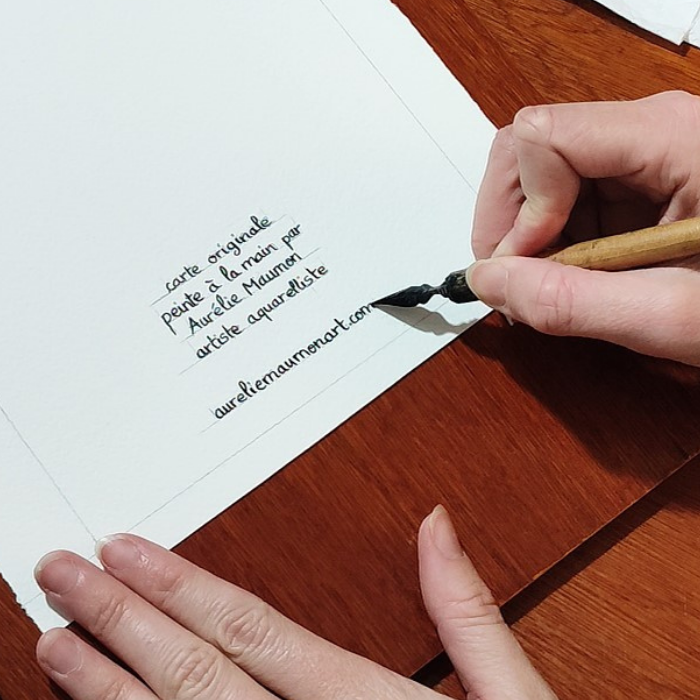 carte originale
peinte à la main par
Aurélie Maumon
artiste aquarelliste
aureliemaumonart.com